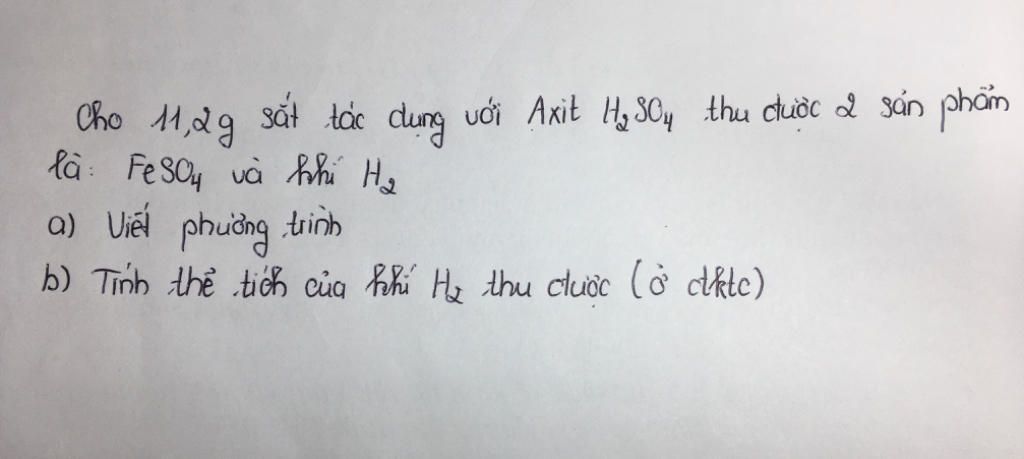 Cho 11,2g sắt tác dụng với Axit H₂SO₄ thu được 2 sản phẩm
là: FeSO₄ và khí H₂
a) Viết phương trình
b) Tính thể tích của khí H₂ thu được (ở đktc)